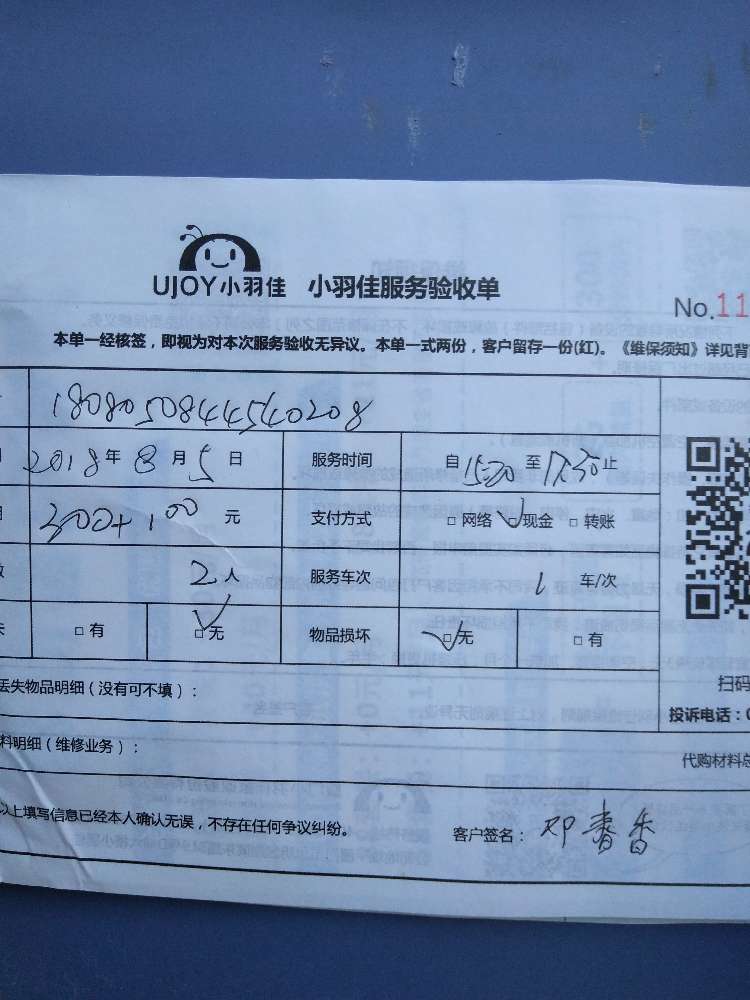 UJOY小羽佳 小羽佳服务验收单
No.11
本单一经核签，即视为对本次服务验收无异议。本单一式两份，客户留存一份(红)。《维保须知》详见背
1808050844540208
2018年8月5日 服务时间 自15:30至17:30止
300+100元 支付方式 □网络 ☑现金 □转账
2人 服务车次 1车/次
□有 ☑无 物品损坏 ☑无 □有
丢失物品明细（没有可不填）：
扫码
投诉电话：0
料明细（维修业务）：
代购材料总
以上填写信息已经本人确认无误，不存在任何争议纠纷。
客户签名：邓春香